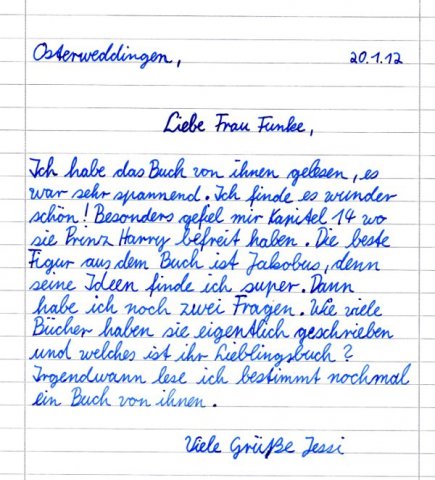 Osterweddingen, 20.1.12
Liebe Frau Funke,
Ich habe das Buch von ihnen gelesen, es
war sehr spannend. Ich finde es wunder
schön! Besonders gefiel mir Kapitel 14 wo
sie Prinz Harry befreit haben. Die beste
Figur aus dem Buch ist Jakobus, denn
seine Ideen finde ich super. Dann
habe ich noch zwei Fragen. Wie viele
Bücher haben sie eigentlich geschrieben
und welches ist ihr Lieblingsbuch?
Irgendwann lese ich bestimmt nochmal
ein Buch von ihnen.
Viele Grüße Jessi